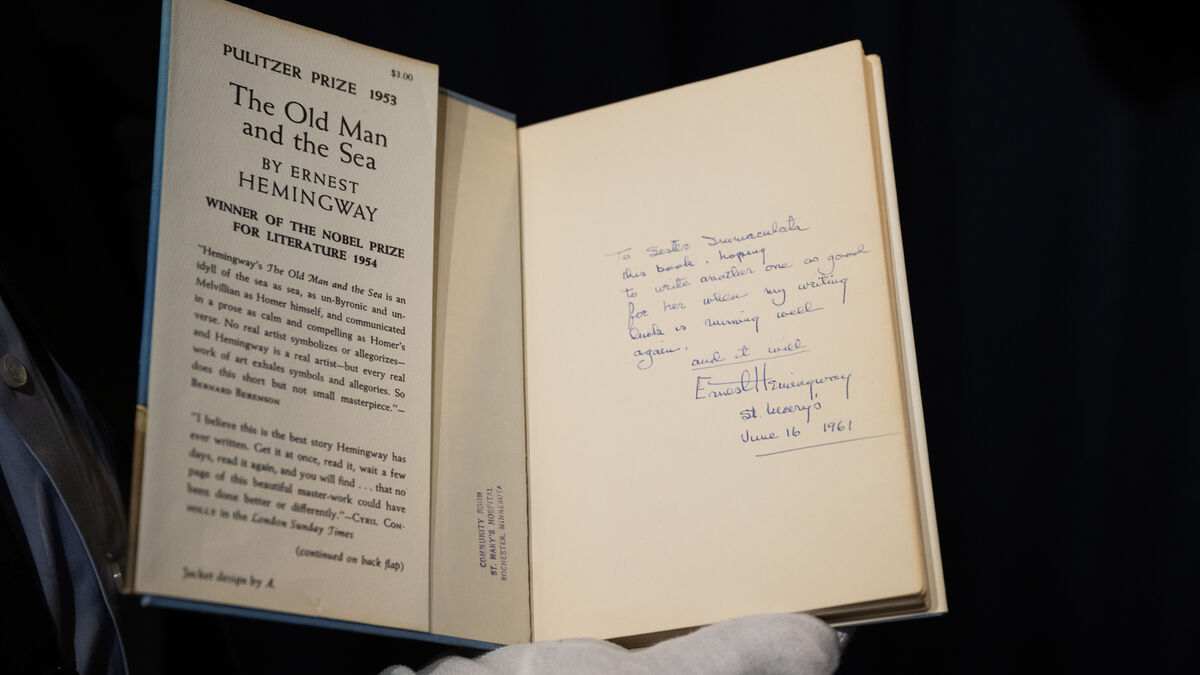 PULITZER PRIZE 1953
$3.00
The Old Man
and the Sea
BY ERNEST
HEMINGWAY
WINNER OF THE NOBEL PRIZE
FOR LITERATURE 1954
"Hemingway's The Old Man and the Sea is an
idyll of the sea as sea, as un-Byronic and un-
Melvillian as Homer himself, and communicated
in a prose as calm and compelling as Homer's
verse. No real artist symbolizes or allegorizes—
and Hemingway is a real artist—but every real
work of art exhales symbols and allegories. So
does this short but not small masterpiece."—
BERNARD BERENSON
"I believe this is the best story Hemingway has
ever written. Get it at once, read it, wait a few
days, read it again, and you will find . . . that no
page of this beautiful master-work could have
been done better or differently."—CYRIL CON-
NOLLY in the London Sunday Times
(continued on back flap)
Jacket design by A.
COMMUNITY ROOM
ST. MARY'S HOSPITAL
ROCHESTER, MINNESOTA
To Sester Immaculata
this book, hoping
to write another one as good
for her when my writing
luck is running well
again.
and it will
Ernest Hemingway
St. Mary's
June 16 1961